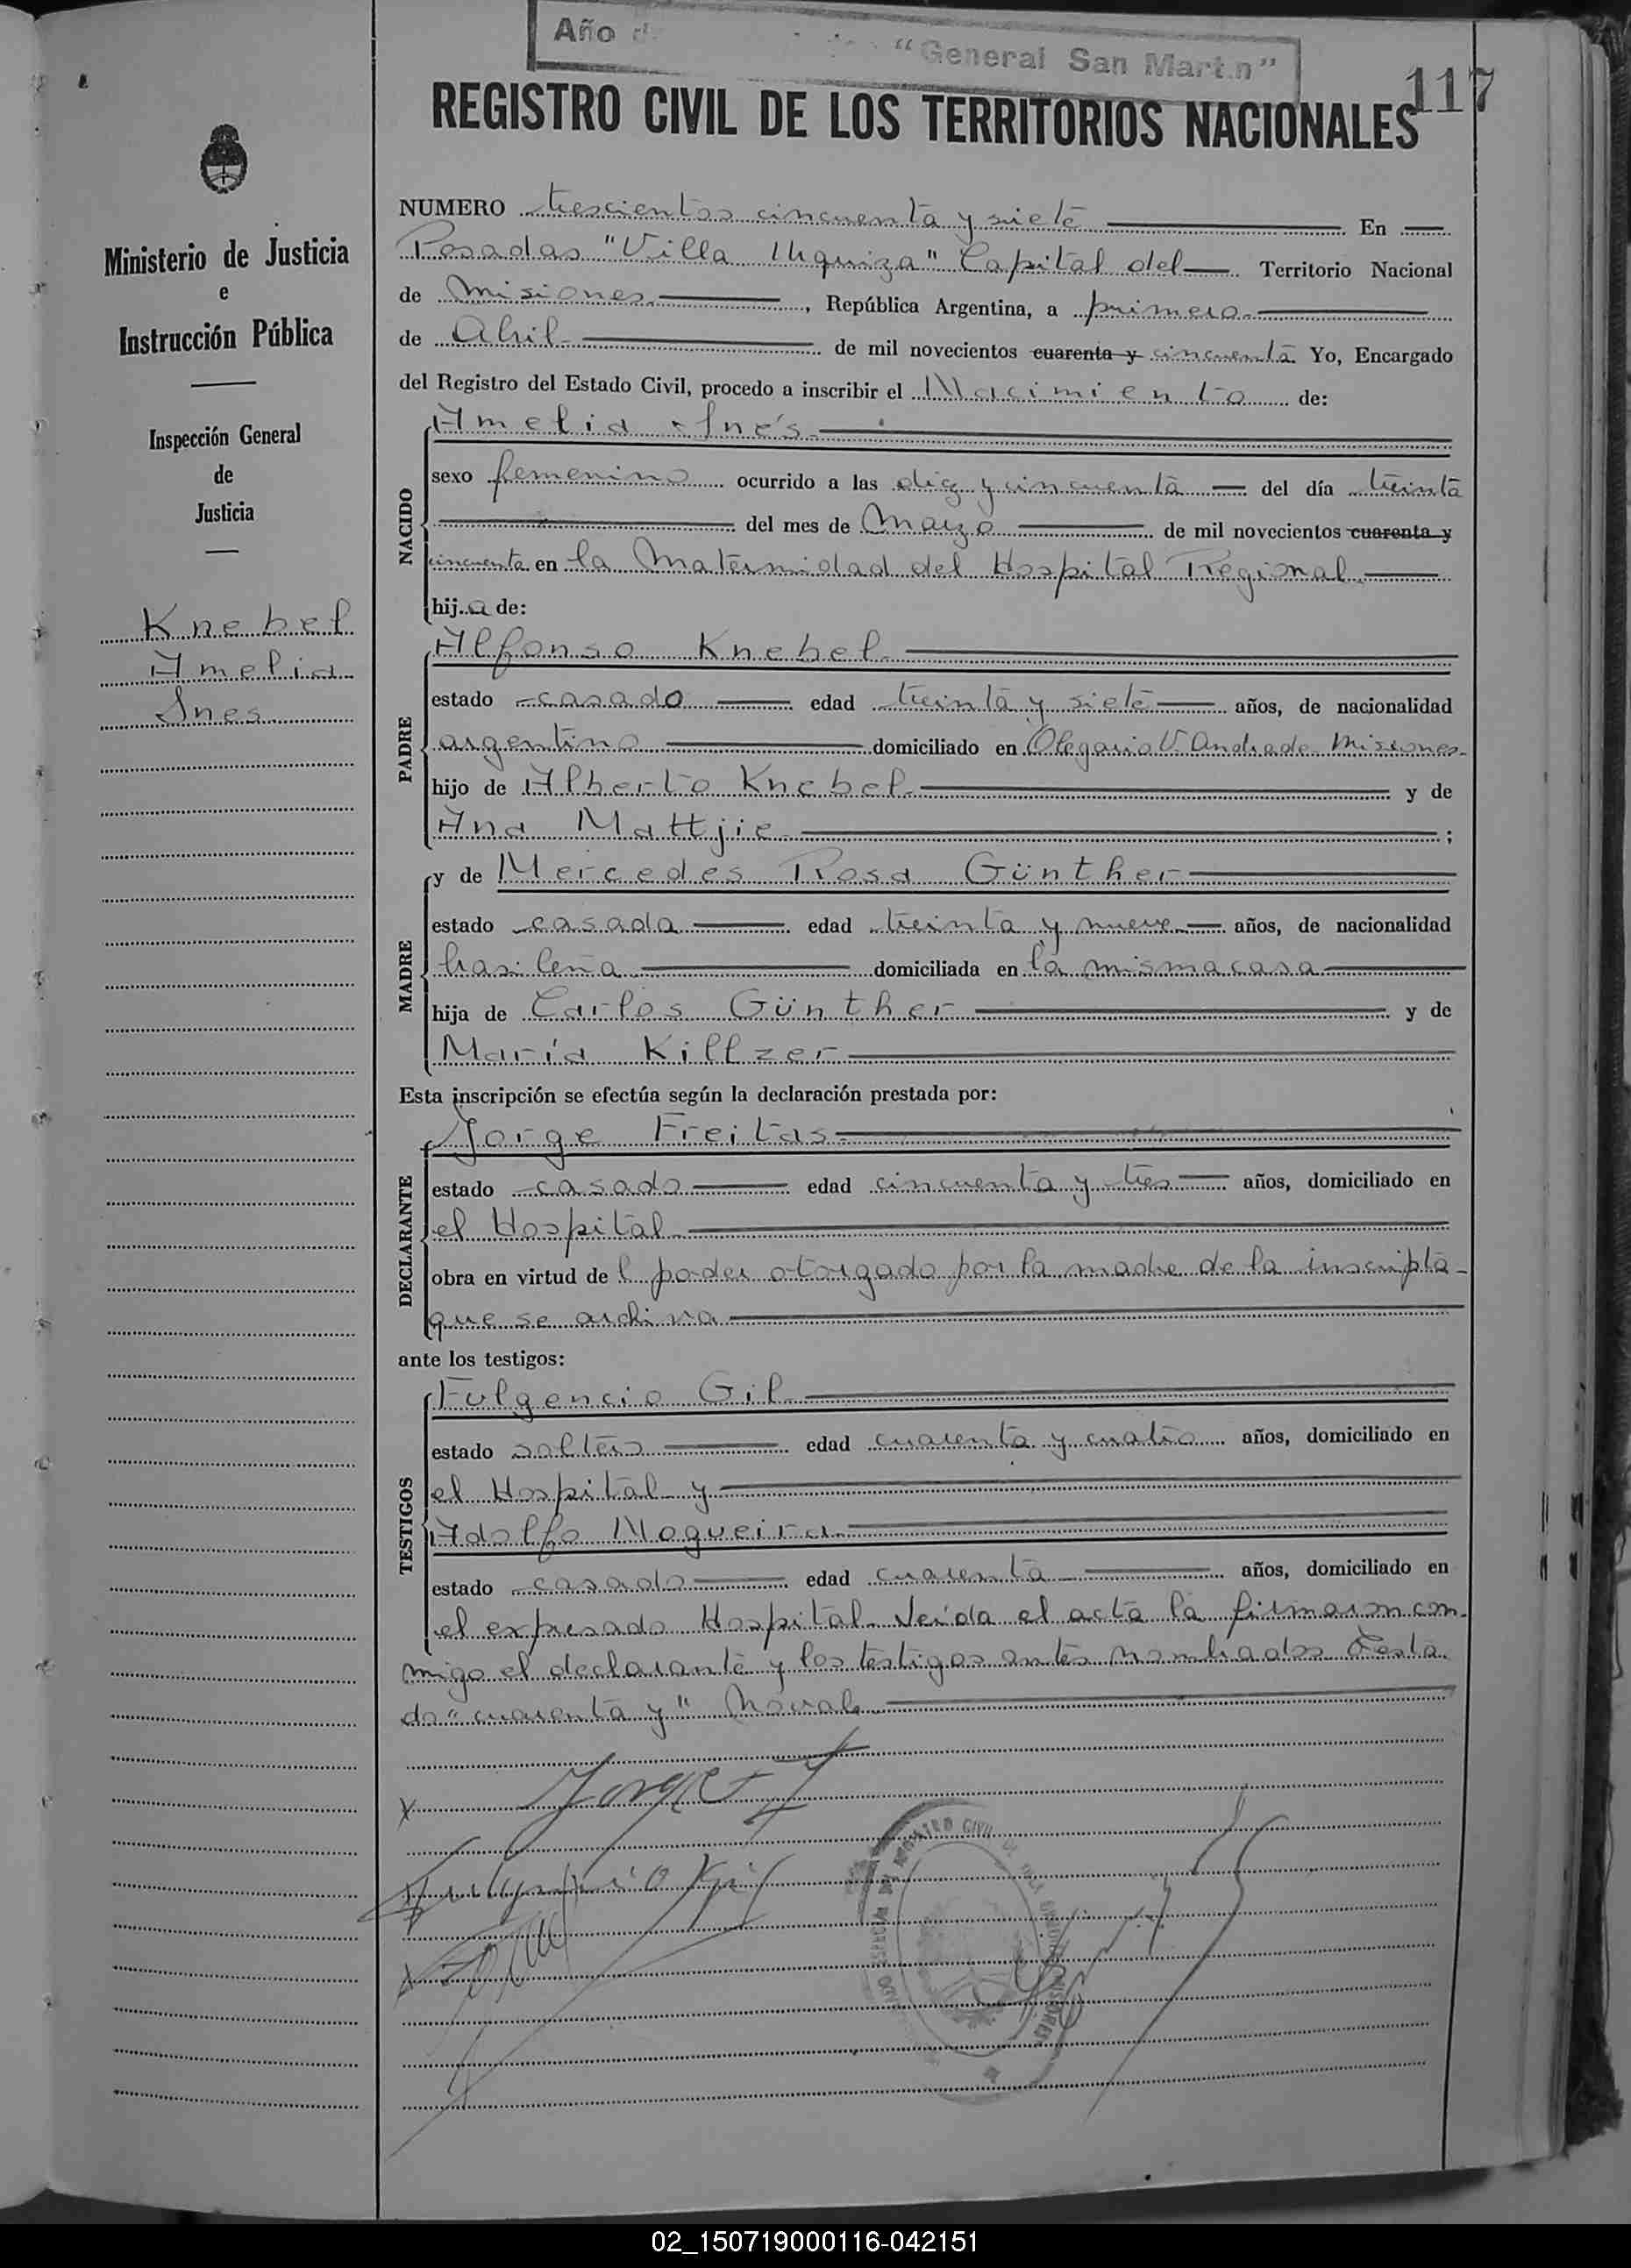 Año "General San Mart.n"
117
REGISTRO CIVIL DE LOS TERRITORIOS NACIONALES
Ministerio de Justicia
e
Instrucción Pública
Inspección General
de
Justicia
Knebel
Amelia
Ines
NUMERO trescientos cincuenta y siete En
Posadas "Villa Urquiza" Capital del Territorio Nacional
de Misiones, República Argentina, a primero
de Abril de mil novecientos cuarenta y cincuenta Yo, Encargado
del Registro del Estado Civil, procedo a inscribir el Nacimiento de:
NACIDO
Amelia Inés
sexo femenino ocurrido a las diez y cincuenta del día treinta
del mes de Marzo de mil novecientos cuarenta y
cincuenta en la Maternidad del Hospital Regional
hija de:
PADRE
Alfonso Knebel
estado casado edad treinta y siete años, de nacionalidad
argentino domiciliado en Olegario V. Andrade Misiones
hijo de Alberto Knebel y de
Ana Mattjie ;
MADRE
y de Mercedes Rosa Günther
estado casada edad treinta y nueve años, de nacionalidad
brasileña domiciliada en la misma casa
hija de Carlos Günther y de
María Killzer
Esta inscripción se efectúa según la declaración prestada por:
DECLARANTE
Jorge Freitas
estado casado edad cincuenta y tres años, domiciliado en
el Hospital
obra en virtud del poder otorgado por la madre de la inscripta
que se archiva
ante los testigos:
TESTIGOS
Fulgencio Gil
estado soltero edad cuarenta y cuatro años, domiciliado en
el Hospital y
Adolfo Nogueira
estado casado edad cuarenta años, domiciliado en
el expresado Hospital. Leída el acta la firmaron con-
migo el declarante y los testigos antes nombrados Testa
do "cuarenta y" No vale
Jorge F
Fulgencio Gil
REGISTRO CIVIL
MISIONES
02_150719000116-042151